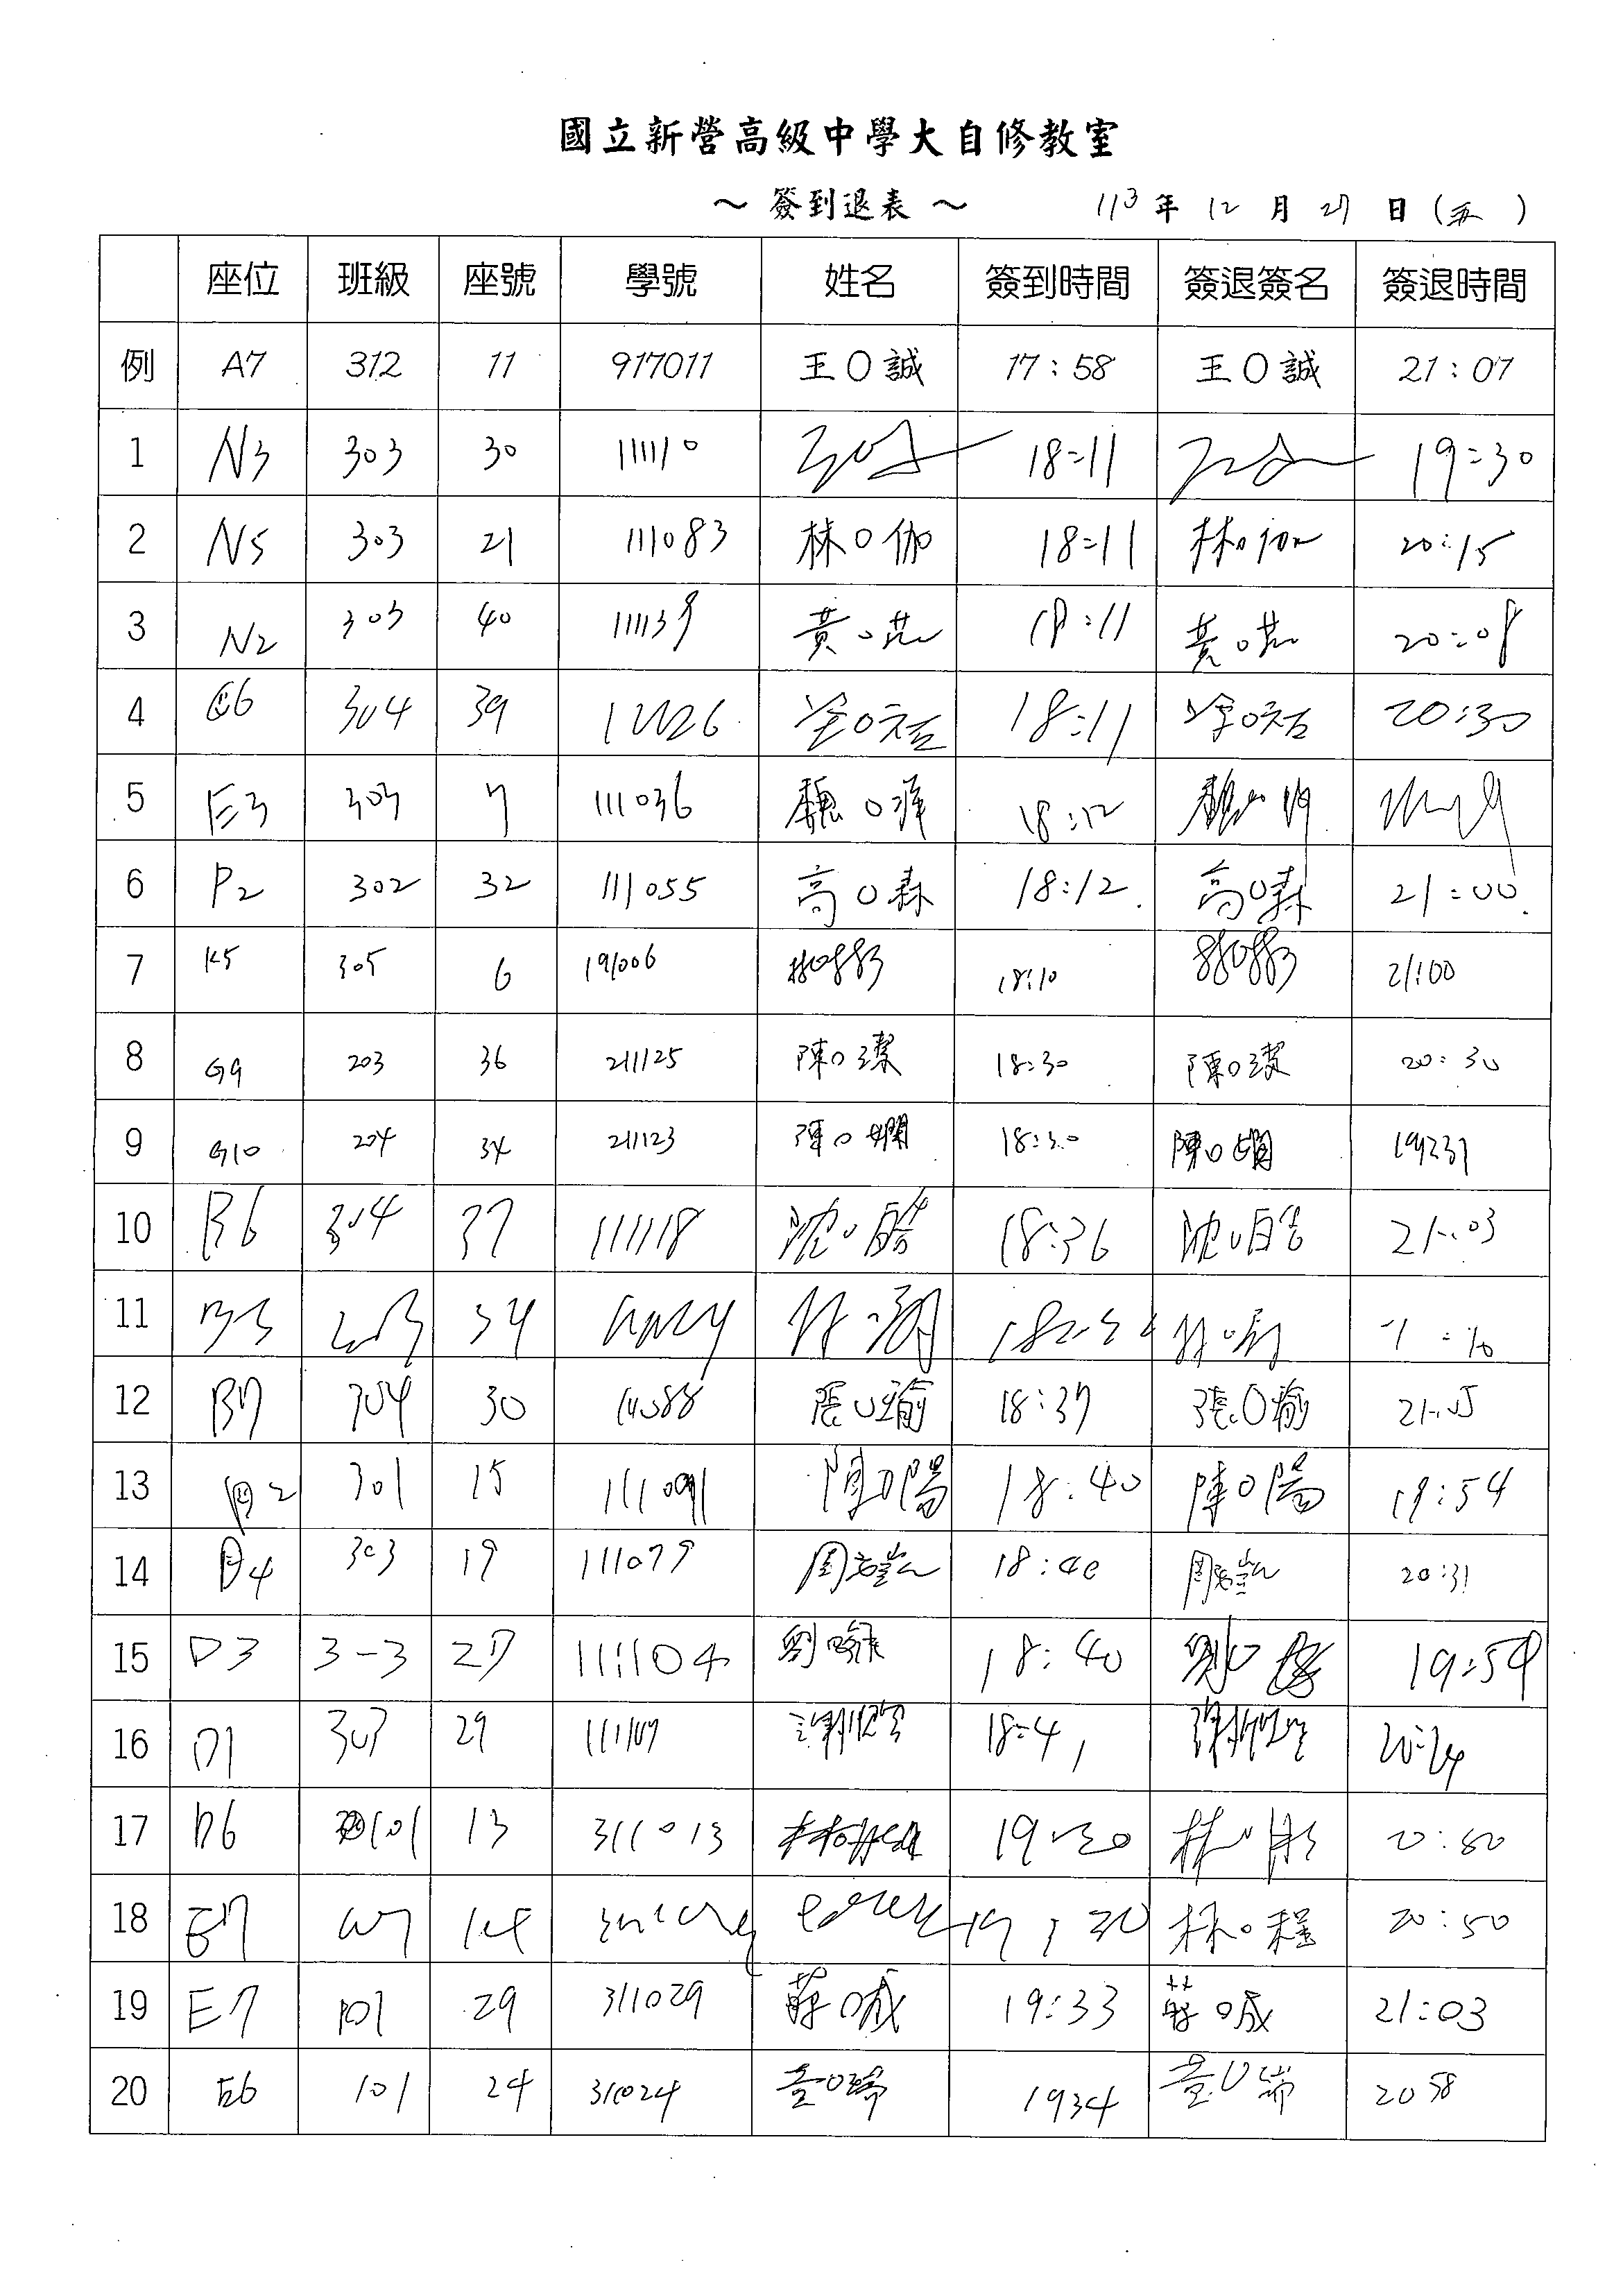 國立新營高級中學大自修教室
～ 簽到退表 ～ 113 年 12 月 27 日 (五)
座位 班級 座號 學號 姓名 簽到時間 簽退簽名 簽退時間
例 A7 312 11 917011 王O誠 17:58 王O誠 21:07
1 N3 303 30 111110 18:11 19:30
2 N5 303 21 111083 林O伽 18:11 林O伽 20:15
3 N2 303 40 111139 黃O 18:11 黃O 20:08
4 304 39 18:11 20:30
5 E3 303 7 111036 魏O 18:12
6 P2 302 32 111055 高O森 18:12 高O森 21:00
7 K5 305 6 191006 18:10 21:00
8 G9 203 36 211125 陳O潔 18:30 陳O潔 20:30
9 G10 204 34 211123 陳O嫻 18:30 陳O嫻
10 B6 304 37 111118 沈O皓 18:36 沈O皓 21:03
11 B5 34
12 B7 304 30 張O瑜 18:37 張O瑜 21:05
13 301 15 陳O陽 18:40 陳O陽 19:54
14 D4 303 19 111079 18:40 20:31
15 D3 3-3 27 111104 劉O 18:40 19:54
16 D1 303 29 111109 18:41
17 D6 101 13 311013 19:30 20:50
18 E7 14 19:30 林O程 20:50
19 E7 101 29 311029 蔣O城 19:33 蔣O城 21:03
20 E6 101 24 311024 1934 2058